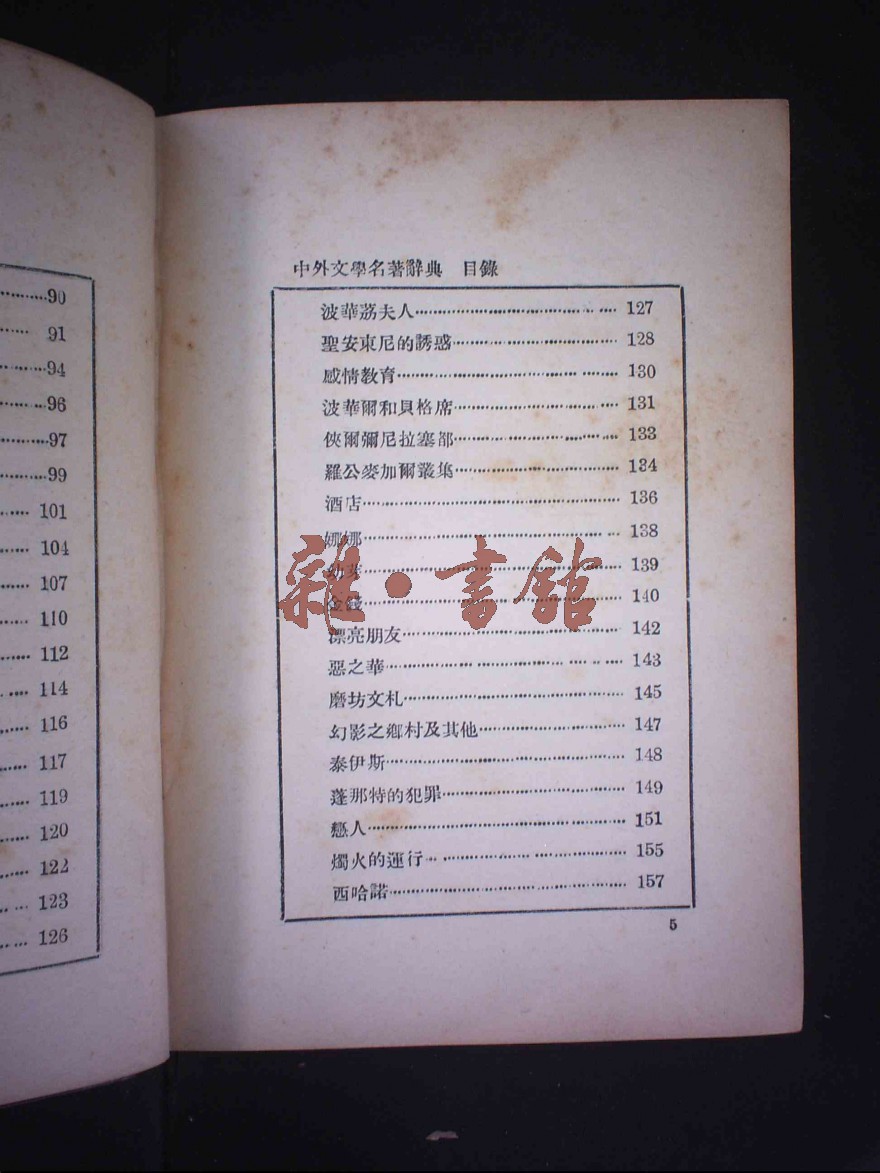 90
91
94
96
97
99
101
104
107
110
112
114
116
117
119
120
122
123
126
中外文學名著辭典 目錄
波華荔夫人 127
聖安東尼的誘惑 128
感情教育 130
波華爾和貝格席 131
俠爾彌尼拉塞部 133
羅公麥加爾叢集 134
酒店 136
娜娜 138
幼芽 139
金錢 140
漂亮朋友 142
惡之華 143
磨坊文札 145
幻影之鄉村及其他 147
泰伊斯 148
蓬那特的犯罪 149
戀人 151
燭火的運行 155
西哈諾 157
5
雜·書館